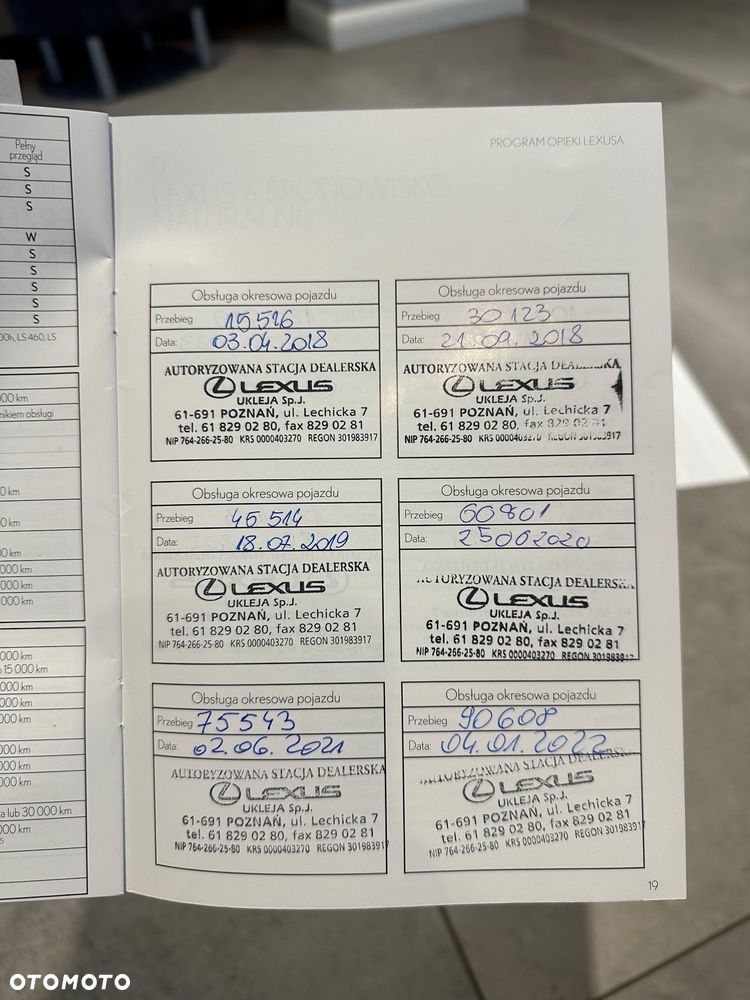 Pełny
przegląd
S
S
S
W
S
S
S
S
S
00h, LS 460, LS
00 km
nikiem obsługi
0 km
0 km
00 km
000 km
000 km
000 km
000 km
15 000 km
000 km
000 km
000 km
000 km
000 km
000 km
a lub 30 000 km
000 km
PROGRAM OPIEKI LEXUSA
LEXUS A ŚRODOWISKO
NATURALNE
Obsługa okresowa pojazdu
Przebieg 15516
Data: 03.04.2018
AUTORYZOWANA STACJA DEALERSKA
LEXUS
UKLEJA Sp.J.
61-691 POZNAŃ, ul. Lechicka 7
tel. 61 829 02 80, fax 829 02 81
NIP 764-266-25-80 KRS 0000403270 REGON 301983917
Obsługa okresowa pojazdu
Przebieg 30123
Data: 21.09.2018
AUTORYZOWANA STACJA
LEXUS
UKLEJA Sp.J.
61-691 POZNAŃ, ul. Lechicka 7
tel. 61 829 02 80, fax 829 02 81
NIP 764-266-25-80 KRS 0000403270 REGON 301983917
Obsługa okresowa pojazdu
Przebieg 45 514
Data: 18.07.2019
AUTORYZOWANA STACJA DEALERSKA
LEXUS
UKLEJA Sp.J.
61-691 POZNAŃ, ul. Lechicka 7
tel. 61 829 02 80, fax 829 02 81
NIP 764-266-25-80 KRS 0000403270 REGON 301983917
Obsługa okresowa pojazdu
Przebieg 60801
Data: 25062020
STACJA DEALERSKA
LEXUS
UKLEJA Sp.J.
61-691 POZNAŃ, ul. Lechicka 7
tel. 61 829 02 80, fax 829 02 81
NIP 764-266-25-80 KRS 0000403270 REGON 301983917
Obsługa okresowa pojazdu
Przebieg 75543
Data: 02.06.2021
AUTORYZOWANA STACJA DEALERSKA
LEXUS
UKLEJA Sp.J.
61-691 POZNAŃ, ul. Lechicka 7
tel. 61 829 02 80, fax 829 02 81
NIP 764-266-25-80 KRS 0000403270 REGON 301983917
Obsługa okresowa pojazdu
Przebieg 90608
Data: 04.01.2022
AUTORYZOWANA STACJA DEALERSKA
LEXUS
UKLEJA Sp.J.
61-691 POZNAŃ, ul. Lechicka 7
tel. 61 829 02 80, fax 829 02 81
NIP 764-266-25-80 KRS 0000403270 REGON 301983917
19
OTOMOTO